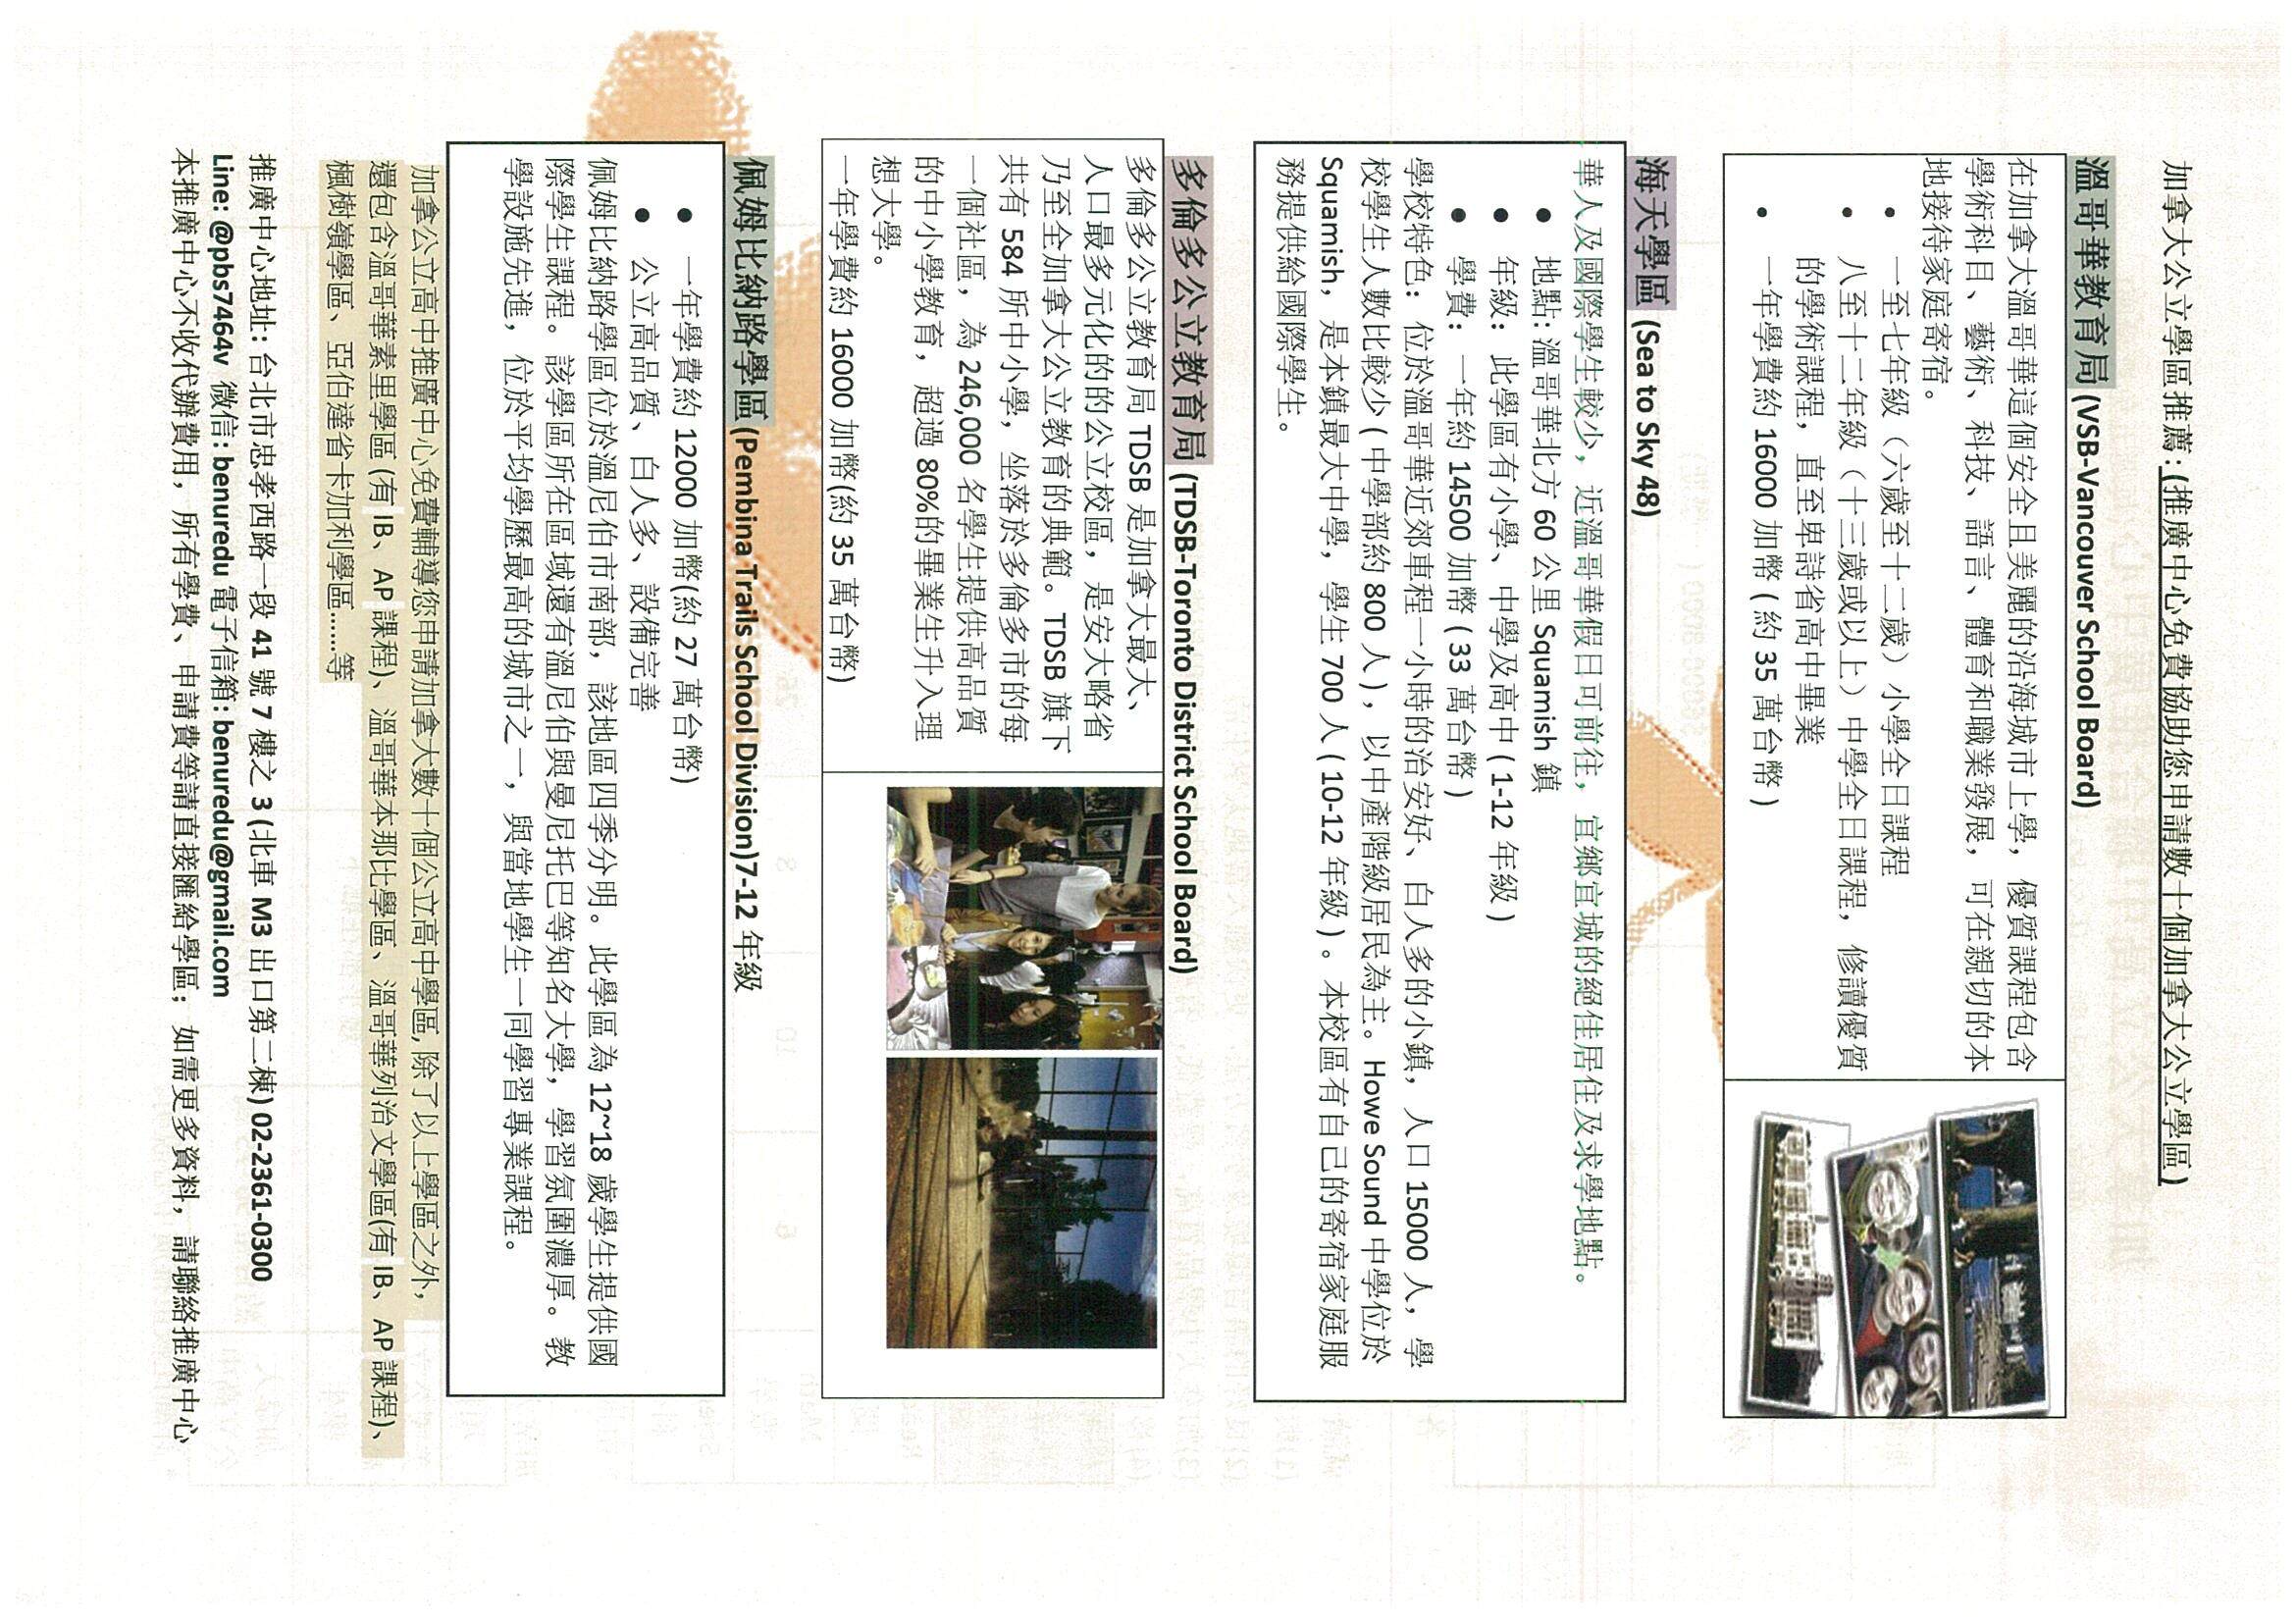 加拿大公立學區推薦: (推廣中心免費協助您申請數十個加拿大公立學區)
溫哥華教育局 (VSB-Vancouver School Board)
在加拿大溫哥華這個安全且美麗的沿海城市上學，優質課程包含
學術科目、藝術、科技、語言、體育和職業發展，可在親切的本
地接待家庭寄宿。
• 一至七年級（六歲至十二歲）小學全日課程
• 八至十二年級（十三歲或以上）中學全日課程，修讀優質
的學術課程，直至卑詩省高中畢業
• 一年學費約 16000 加幣 ( 約 35 萬台幣 )
海天學區 (Sea to Sky 48)
華人及國際學生較少，近溫哥華假日可前往，宜鄉宜城的絕佳居住及求學地點。
• 地點: 溫哥華北方 60 公里 Squamish 鎮
• 年級: 此學區有小學、中學及高中 ( 1-12 年級 )
• 學費: 一年約 14500 加幣 ( 33 萬台幣 )
學校特色: 位於溫哥華近郊車程一小時的治安好、白人多的小鎮，人口 15000 人，學
校學生人數比較少 ( 中學部約 800 人 )，以中產階級居民為主。Howe Sound 中學位於
Squamish，是本鎮最大中學，學生 700 人 ( 10-12 年級 )。本校區有自己的寄宿家庭服
務提供給國際學生。
多倫多公立教育局 (TDSB-Toronto District School Board)
多倫多公立教育局 TDSB 是加拿大最大、
人口最多元化的的公立校區，是安大略省
乃至全加拿大公立教育的典範。TDSB 旗下
共有 584 所中小學，坐落於多倫多市的每
一個社區，為 246,000 名學生提供高品質
的中小學教育，超過 80%的畢業生升入理
想大學。
一年學費約 16000 加幣(約 35 萬台幣)
佩姆比納路學區 (Pembina Trails School Division)7-12 年級
• 一年學費約 12000 加幣(約 27 萬台幣)
• 公立高品質、白人多、設備完善
佩姆比納路學區位於溫尼伯市南部，該地區四季分明。此學區為 12~18 歲學生提供國
際學生課程。該學區所在區域還有溫尼伯與曼尼托巴等知名大學，學習氛圍濃厚。教
學設施先進，位於平均學歷最高的城市之一，與當地學生一同學習專業課程。
加拿公立高中推廣中心免費輔導您申請加拿大數十個公立高中學區, 除了以上學區之外，
還包含溫哥華素里學區 (有 IB、AP 課程)、溫哥華本那比學區、溫哥華列治文學區(有 IB、AP 課程)、
楓樹嶺學區、亞伯達省卡加利學區......等
推廣中心地址: 台北市忠孝西路一段 41 號 7 樓之 3 (北車 M3 出口第二棟) 02-2361-0300
Line: @pbs7464v 微信: benuredu 電子信箱: benuredu@gmail.com
本推廣中心不收代辦費用，所有學費、申請費等請直接匯給學區；如需更多資料，請聯絡推廣中心